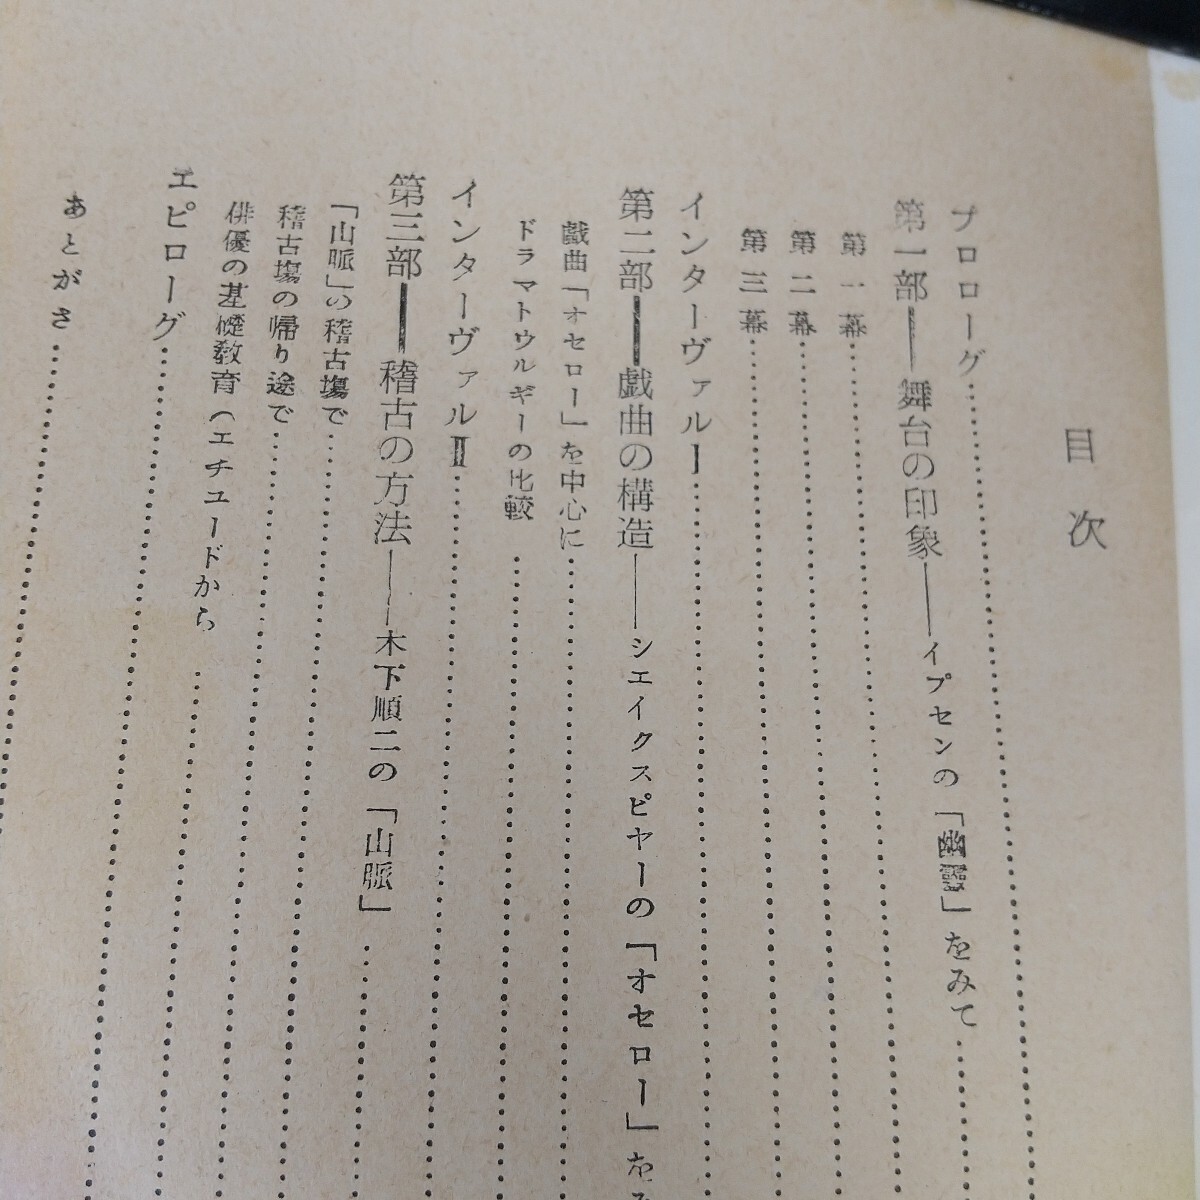 目次
プロローグ
第一部——舞台の印象——イプセンの「幽霊」をみて
第一幕
第二幕
第三幕
インターヴァルⅠ
第二部——戯曲の構造——シエイクスピヤーの「オセロー」をみ
戯曲「オセロー」を中心に
ドラマトウルギーの比較
インターヴァルⅡ
第三部——稽古の方法——木下順二の「山脈」
「山脈」の稽古場で
稽古場の帰り途で
俳優の基礎教育(エチユードから
エピローグ
あとがき